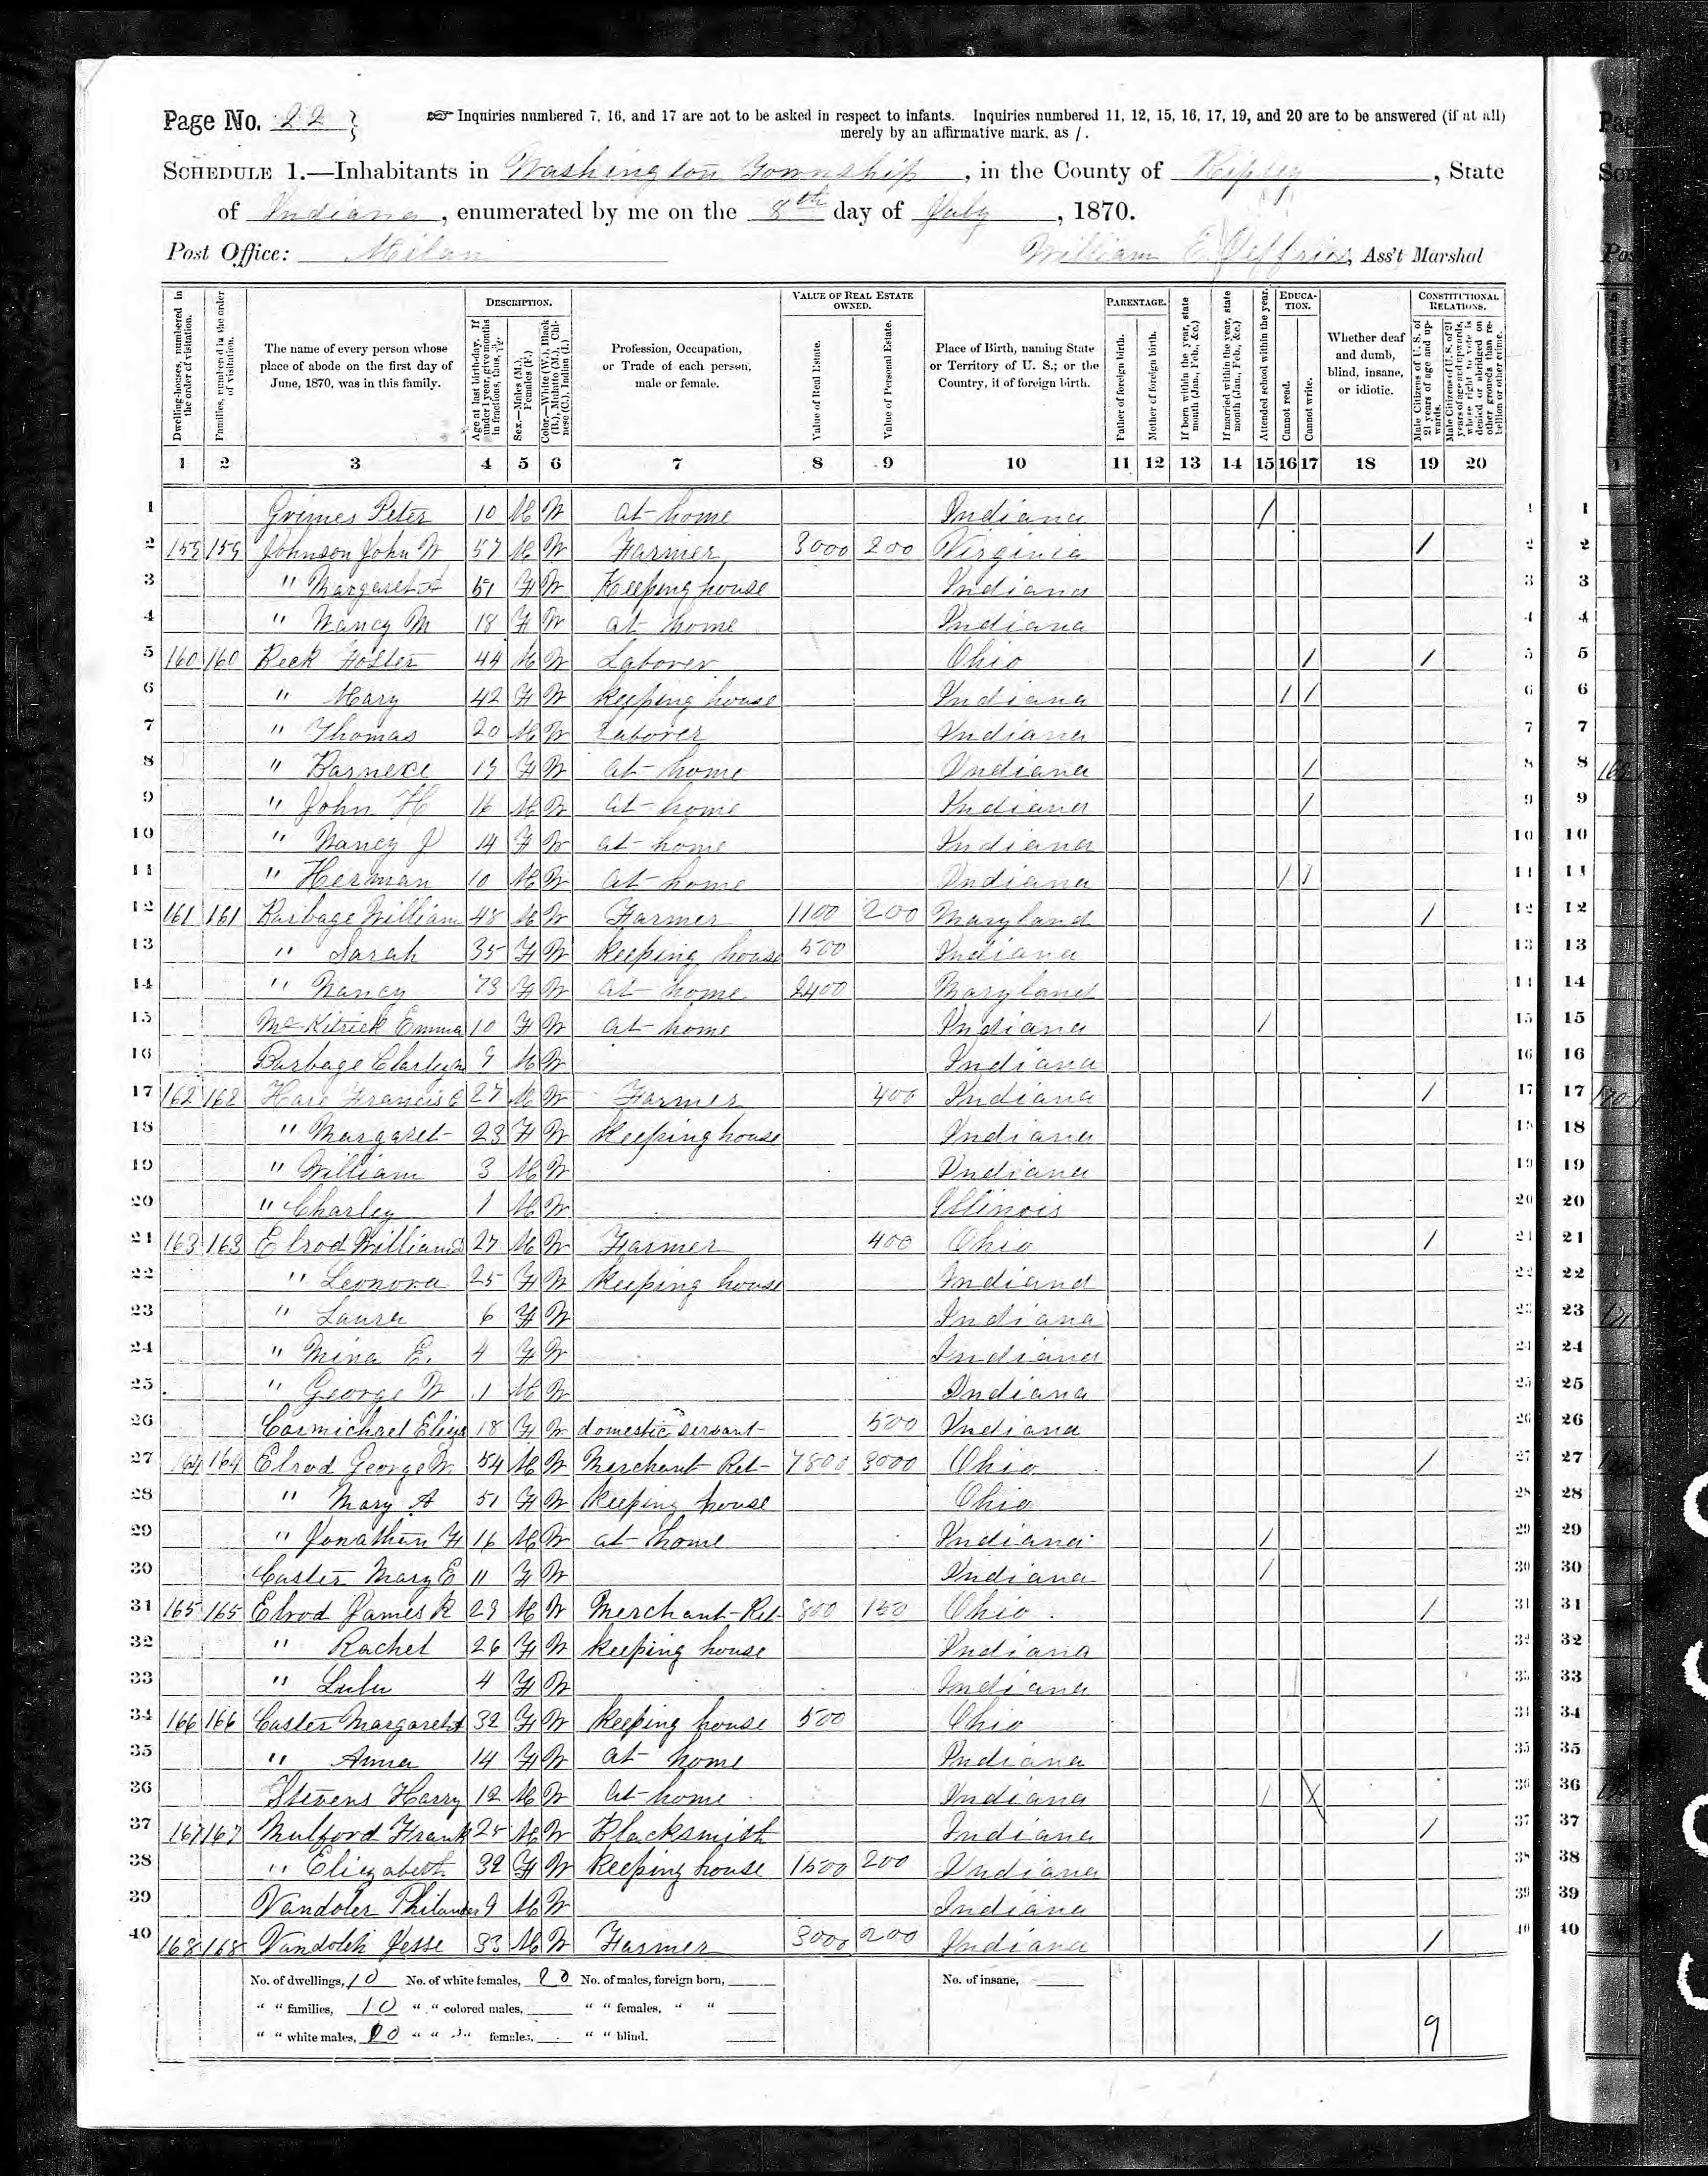 Page No. 22
Inquiries numbered 7, 16, and 17 are not to be asked in respect to infants. Inquiries numbered 11, 12, 15, 16, 17, 19, and 20 are to be answered (if at all)
merely by an affirmative mark, as /.
SCHEDULE 1.—Inhabitants in Washington Township, in the County of Ripley, State
of Indiana, enumerated by me on the 8th day of July, 1870.
Post Office: Milan William E Jeffries, Ass't Marshal
DESCRIPTION. VALUE OF REAL ESTATE OWNED. PARENTAGE. EDUCATION. CONSTITUTIONAL RELATIONS.
Dwelling-houses, numbered in the order of visitation.
Families, numbered in the order of visitation.
The name of every person whose place of abode on the first day of June, 1870, was in this family.
Age at last birth-day. If under 1 year, give months in fractions, thus, 3/12.
Sex.—Males (M.), Females (F.)
Color.—White (W.), Black (B.), Mulatto (M.), Chinese (C.), Indian (I.)
Profession, Occupation, or Trade of each person, male or female.
Value of Real Estate.
Value of Personal Estate.
Place of Birth, naming State or Territory of U. S.; or the Country, if of foreign birth.
Father of foreign birth.
Mother of foreign birth.
If born within the year, state month (Jan., Feb., &c.)
If married within the year, state month (Jan., Feb., &c.)
Attended school within the year.
Cannot read.
Cannot write.
Whether deaf and dumb, blind, insane, or idiotic.
Male Citizens of U. S. of 21 years of age and upwards.
Male Citizens of U. S. of 21 years of age and upwards, whose right to vote is denied or abridged on other grounds than rebellion or other crime.
1 2 3 4 5 6 7 8 9 10 11 12 13 14 15 16 17 18 19 20
1 Grimes Peter 10 M W at home Indiana / 1
2 159 159 Johnson John W 57 M W Farmer 3000 200 Virginia / 2
3 " Margaret A 51 F W Keeping house Indiana 3
4 " Nancy M 18 F W at home Indiana 4
5 160 160 Beck Foster 44 M W Laborer Ohio / / 5
6 " Mary 42 F W keeping house Indiana / / 6
7 " Thomas 20 M W Laborer Indiana 7
8 " 19 F W at home Indiana / 8
9 " John H 16 M W at home Indiana / 9
10 " Nancy J 14 F W at home Indiana 10
11 " Herman 10 M W at home Indiana / / 11
12 161 161 Barbage William 48 M W Farmer 1100 200 Maryland / 12
13 " Sarah 35 F W keeping house 500 Indiana 13
14 " Nancy 73 F W at home 2400 Maryland 14
15 McKitrick Emma 10 F W at home Indiana / 15
16 Barbage 9 M W Indiana 16
17 162 162 Francis 27 M W Farmer 400 Indiana / 17
18 " Margaret 23 F W keeping house Indiana 18
19 " William 3 M W Indiana 19
20 " Charley 1 M W Illinois 20
21 163 163 Elrod William 27 M W Farmer 400 Ohio / 21
22 " Leonora 25 F W keeping house Indiana 22
23 " Laura 6 F W Indiana 23
24 " Mina E. 4 F W Indiana 24
25 " George W 1 M W Indiana 25
26 Carmichael Eliza 18 F W domestic servant 500 Indiana 26
27 164 164 Elrod George W. 54 M W Merchant Ret 7800 3000 Ohio / 27
28 " Mary A 51 F W keeping house Ohio 28
29 " Jonathan F 16 M W at home Indiana / 29
30 Caster Mary E 11 F W Indiana / 30
31 165 165 Elrod James R 29 M W Merchant-Ret 800 150 Ohio / 31
32 " Rachel 26 F W keeping house Indiana 32
33 " Lulu 4 F W Indiana 33
34 166 166 Caster Margaret A 32 F W keeping house 500 Ohio 34
35 " Anna 14 F W at home Indiana 35
36 Stevens Harry 12 M W at home Indiana / X 36
37 167 167 Mulford Frank 25 M W Blacksmith Indiana / 37
38 " Elizabeth 32 F W keeping house 1500 200 Indiana 38
39 Philander 9 M W Indiana 39
40 168 168 Jesse 33 M W Farmer 3000 200 Indiana / 40
No. of dwellings, 10 No. of white females, 20 No. of males, foreign born, No. of insane,
" " families, 10 " " colored males, " " females, " "
" " white males, 20 " " " females, " " blind.
9